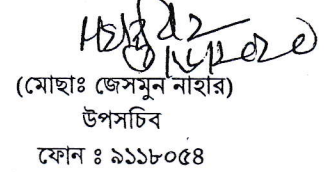 (মোছাঃ জেসমুন নাহার)
উপসচিব
ফোন ঃ ৯১১৮০৫৪